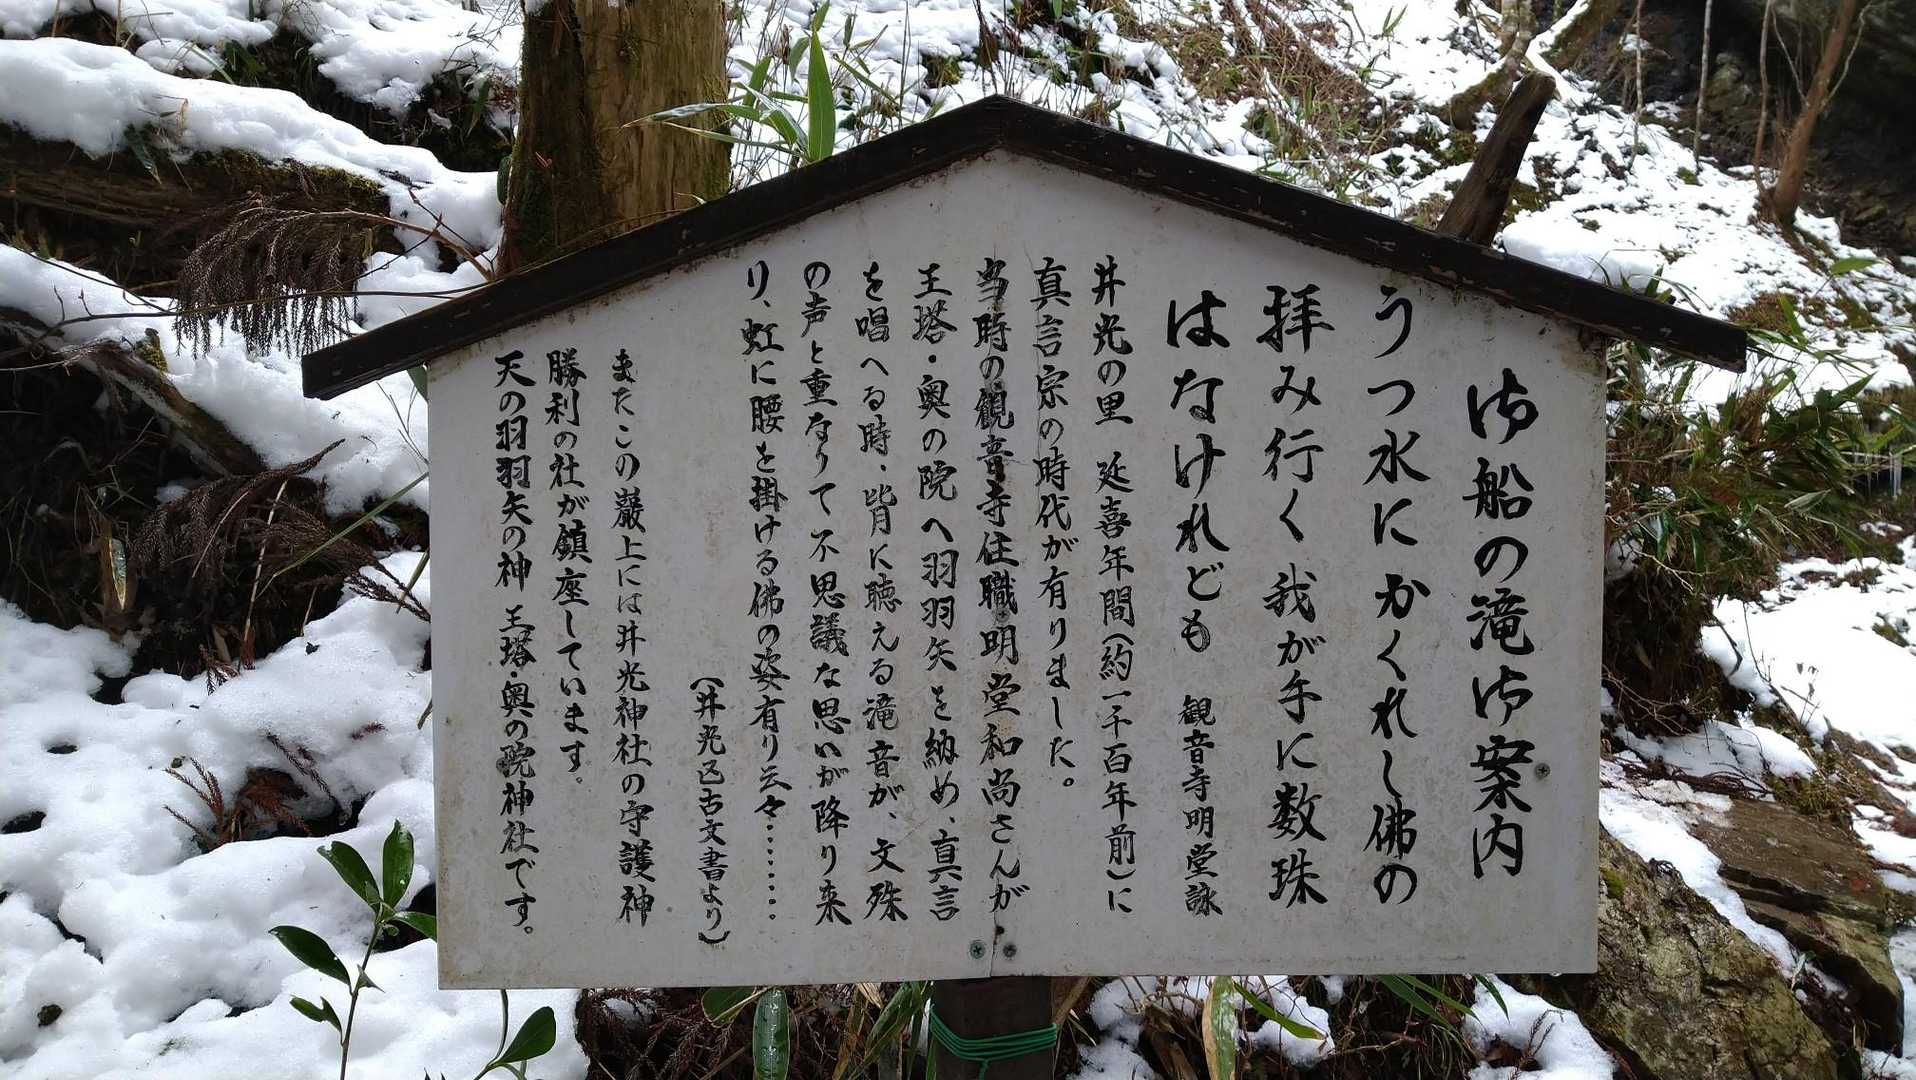 御船の滝御案内
うつ水にかくれし佛の
拝み行く我が手に数珠
はなけれども 観音寺明堂詠
井光の里 延喜年間(約一千百年前)に
真言宗の時代が有りました。
当時の観音寺住職明堂和尚さんが
王塔・奥の院へ羽羽矢を納め、真言
を唱へる時、皆月に聴える滝音が、文殊
の声と重なりて不思議な思いが降り来
り、虹に腰を掛ける佛の姿有り云々・・・・・・・
(井光区古文書より)
またこの巌上には井光神社の守護神
勝利の社が鎮座しています。
天の羽羽矢の神 王塔・奥の院神社です。